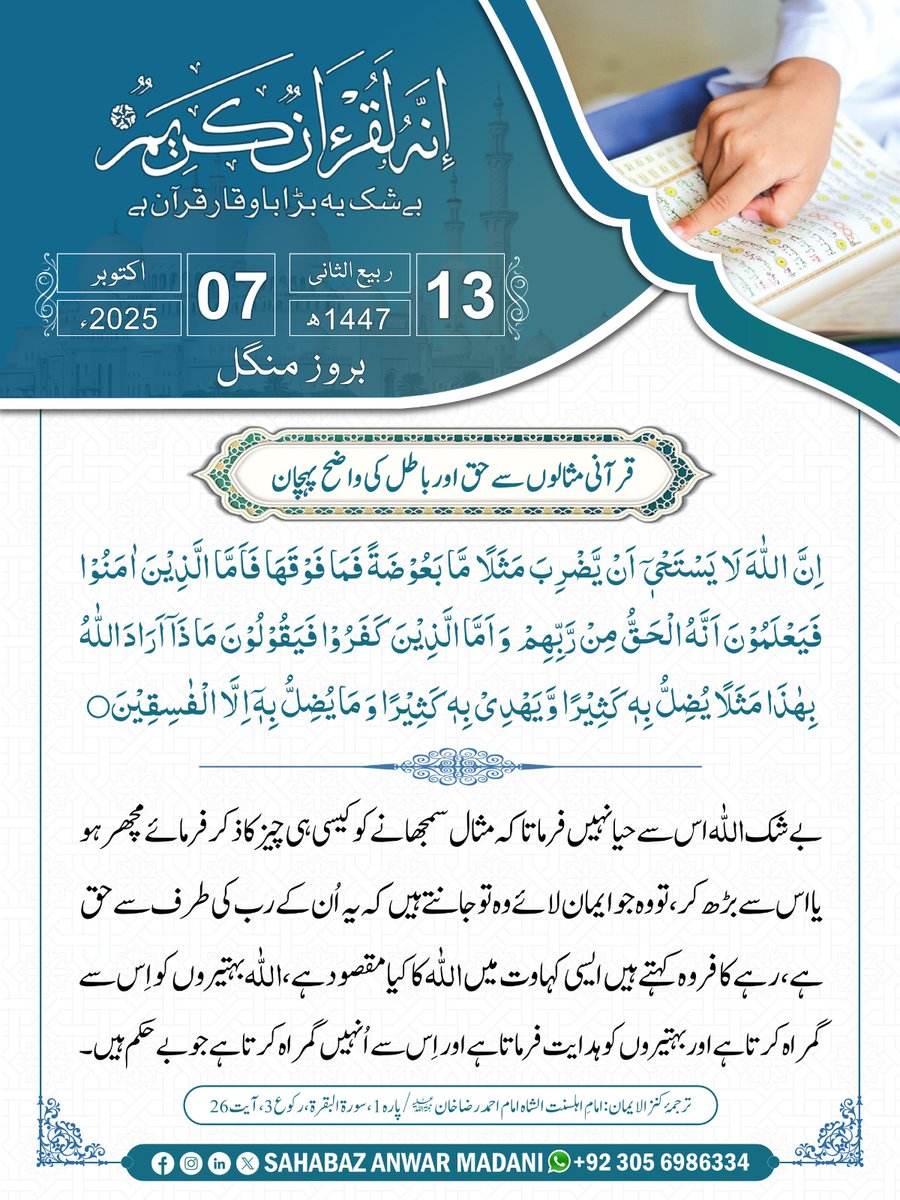 اِنَّهٗ لَقُرْءَانٌ كَرِيمٌ
بے شک یہ بڑا باوقار قرآن ہے
13 ربیع الثانی 07 اکتوبر
1447ھ 2025ء
بروز منگل
قرآنی مثالوں سے حق اور باطل کی واضح پہچان
اِنَّ اللّٰهَ لَا یَسْتَحْیٖۤ اَنْ یَّضْرِبَ مَثَلًا مَّا بَعُوْضَةً فَمَا فَوْقَهَا فَاَمَّا الَّذِیْنَ اٰمَنُوْا
فَیَعْلَمُوْنَ اَنَّهُ الْحَقُّ مِنْ رَّبِّهِمْ وَ اَمَّا الَّذِیْنَ كَفَرُوْا فَیَقُوْلُوْنَ مَا ذَاۤ اَرَادَ اللّٰهُ
بِهٰذَا مَثَلًا یُضِلُّ بِهٖ كَثِیْرًا وَّ یَهْدِیْ بِهٖ كَثِیْرًا وَ مَا یُضِلُّ بِهٖۤ اِلَّا الْفٰسِقِیْنَ○
بے شک اللّٰہ اس سے حیا نہیں فرماتا کہ مثال سمجھانے کو کیسی ہی چیز کا ذکر فرمائے مچھر ہو
یا اس سے بڑھ کر، تو وہ جو ایمان لائے وہ تو جانتے ہیں کہ یہ اُن کے رب کی طرف سے حق
ہے، رہے کافر وہ کہتے ہیں ایسی کہاوت میں اللّٰہ کا کیا مقصود ہے، اللّٰہ بہتیروں کو اِس سے
گمراہ کرتا ہے اور بہتیروں کو ہدایت فرماتا ہے اور اِس سے اُنہیں گمراہ کرتا ہے جو بے حکم ہیں۔
ترجمۂ کنز الایمان: امامِ اہلسنت الشاہ امام احمد رضا خان / پارہ 1، سورۃ البقرۃ، رکوع 3، آیت 26
SAHABAZ ANWAR MADANI +92 305 6986334